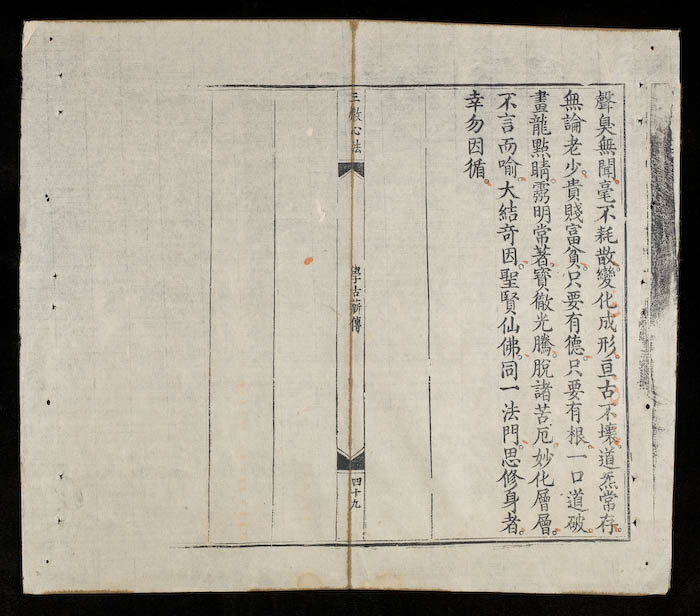 聲臭無聞毫不耗散變化成形亘古不壞道炁常存
無論老少貴賤富貧只要有德只要有根一口道破
畫龍點睛靈明常著寶徹光騰脫諸苦厄妙化層層
不言而喻大結奇因聖賢仙佛同一法門思修身者
幸勿因循
三教心法
學古薪傳
四十九